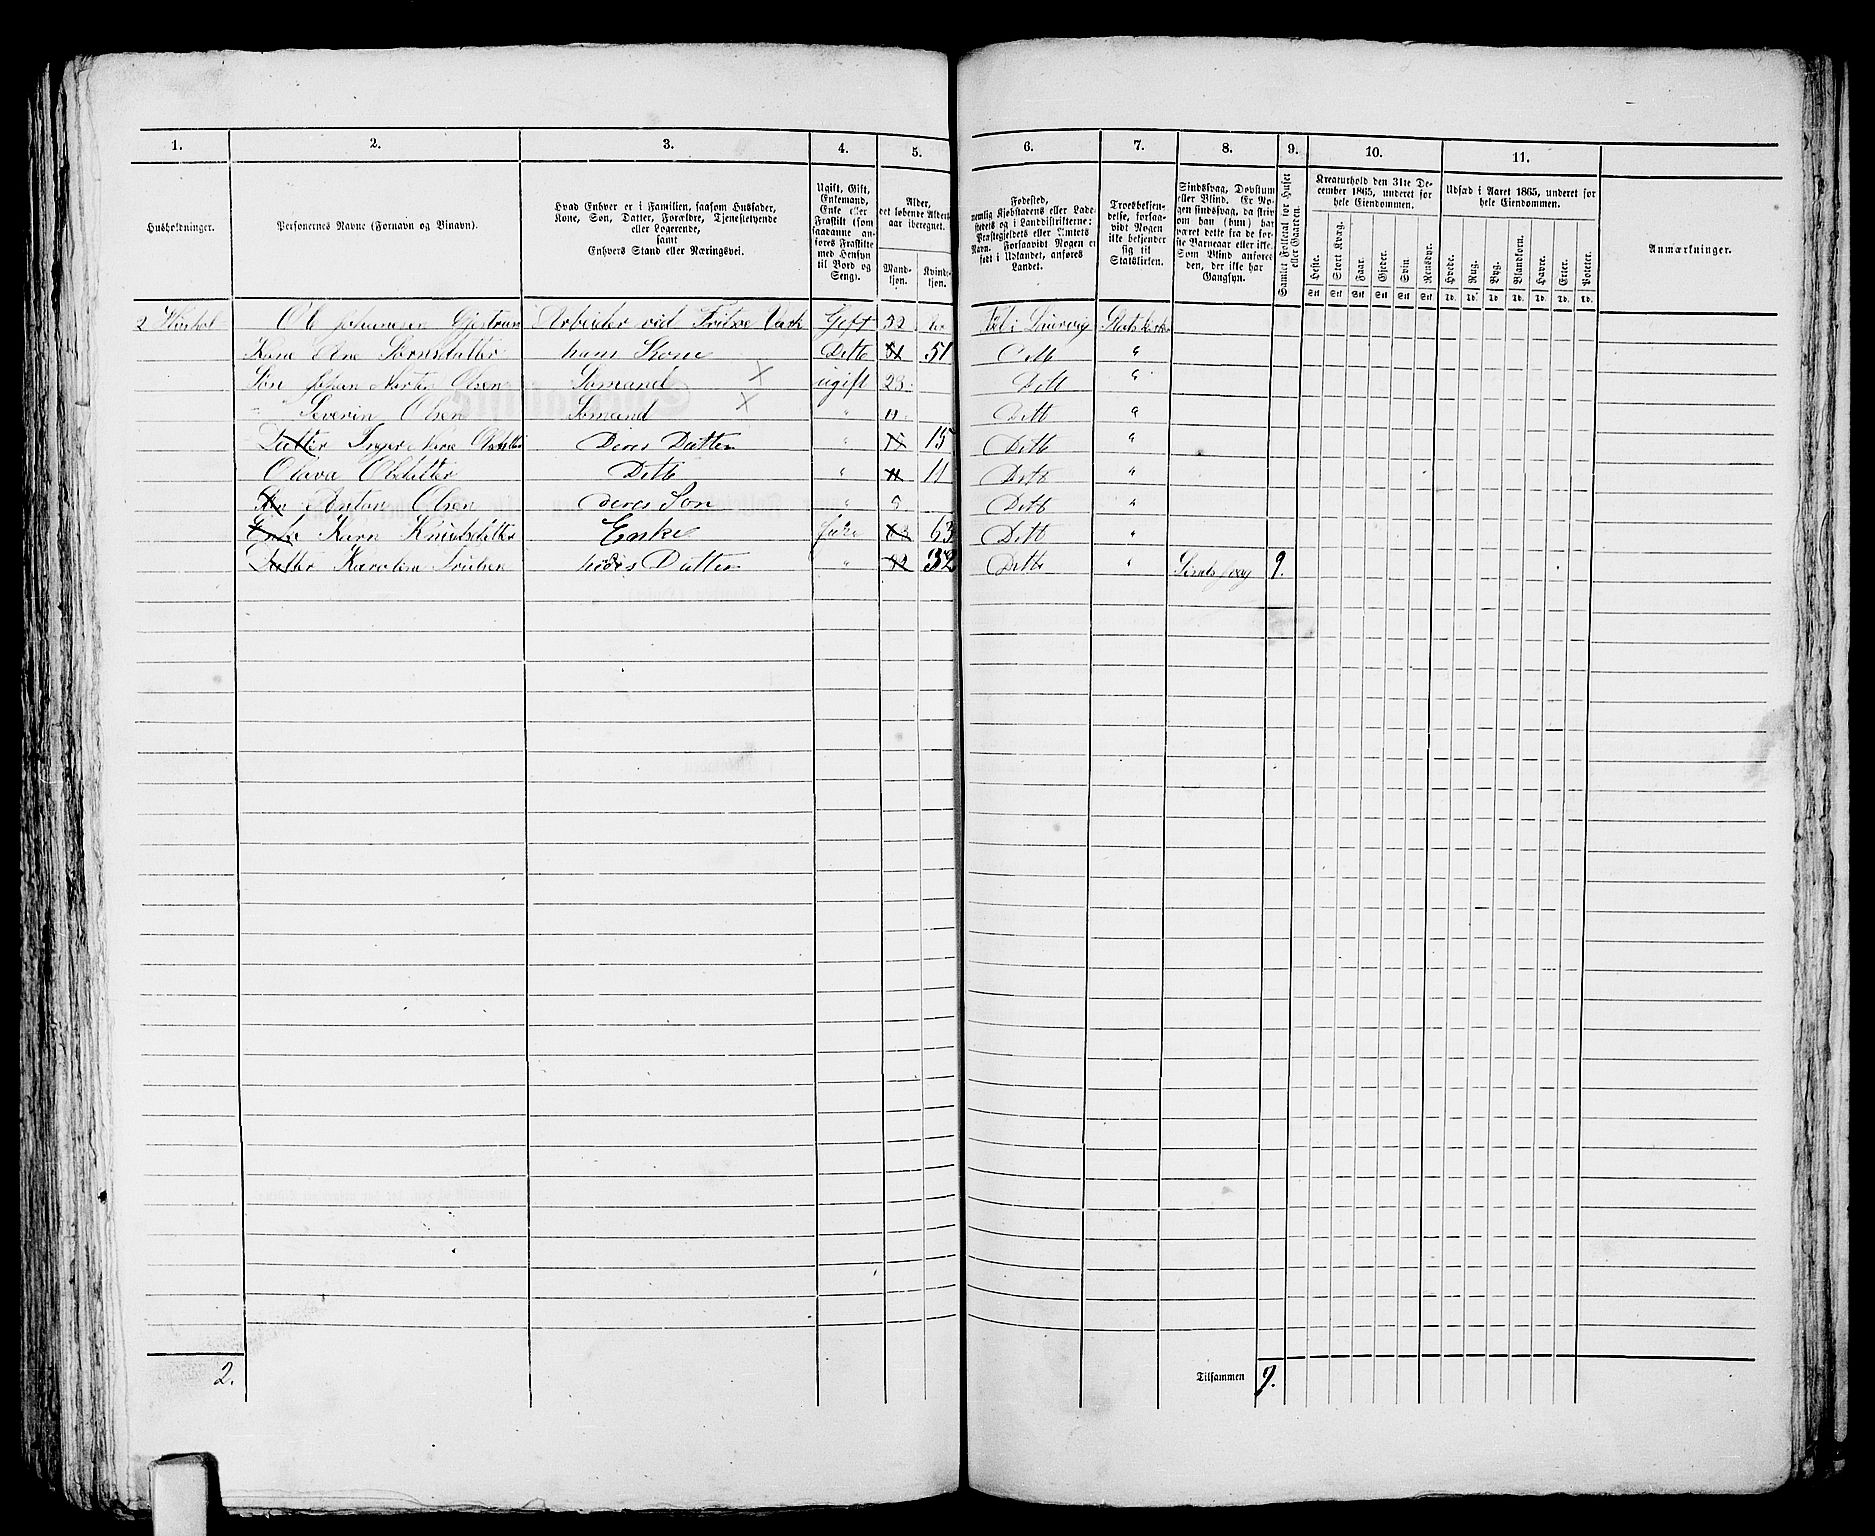 1. 2. 3. 4. 5. 6. 7. 8. 9. 10. 11.
Husholdninger.
Personernes Navne (Fornavn og Binavn).
Hvad Enhver er i Familien, saasom Husfader,
Kone, Søn, Datter, Forældre, Tjenestetyende
eller Logerende,
samt
Enhvers Stand eller Næringsvei.
Ugift, Gift,
Enkemand,
Enke eller
Fraskilt (som
saadanne an-
føres Fraskilte
med Hensyn
til Bord og
Seng).
Alder,
det løbende Alders-
aar iberegnet.
Mand-
kjøn.
Kvinde-
kjøn.
Fødested,
nemlig Kjøbstadens eller Lade-
stedets og i Landdistrikterne:
Præstegjeldets eller Amtets
Navn. Forsaavidt Nogen er
født i Udlandet, anføres
Landet.
Troesbekjen-
delse, forsaa-
vidt Nogen
ikke bekjender
sig til
Statskirken.
Sindssvag, Døvstum
eller Blind. Er No-
gen sindssvag, da skriv
om han (hun) har
været dette fra de før-
ste Barneaar eller ikke.
Som Blind anføres
den, der ikke har
Gangsyn.
Samlet Folketal for Huset
eller Gaarden.
Kreaturhold den 31te De-
cember 1865, underet for
hele Eiendommen.
Heste. Stort Kvæg. Faar. Gjeder. Svin. Rensdyr.
Stk Stk Stk Stk Stk Stk
Udsæd i Aaret 1865, underet for
hele Eiendommen.
Hvede. Rug. Byg. Blandkorn. Havre. Erter. Poteter.
Td. Td. Td. Td. Td. Td. Td.
Anmærkninger.
2 Ole Johansen Arbeider ved Fritzøe Værk Gift 52
Kone hans Kone Ditto 51 51 Ditto "
Søn Johan Martin Olsen Sømand X ugift 23 Ditto "
" Severin Olsen Sømand X " Ditto "
Datter Inger Deres Datter " 15 15 Ditto "
Olava Olsdatter Ditto " 11 11 Ditto "
Søn Anton Olsen deres Søn " 9 Ditto "
Enke Karn Knudsdatter Enke 63 63 Ditto "
Datter Karoline Datter " 32 32 Ditto " Sindssvag 9.
2.
Tilsammen 9.